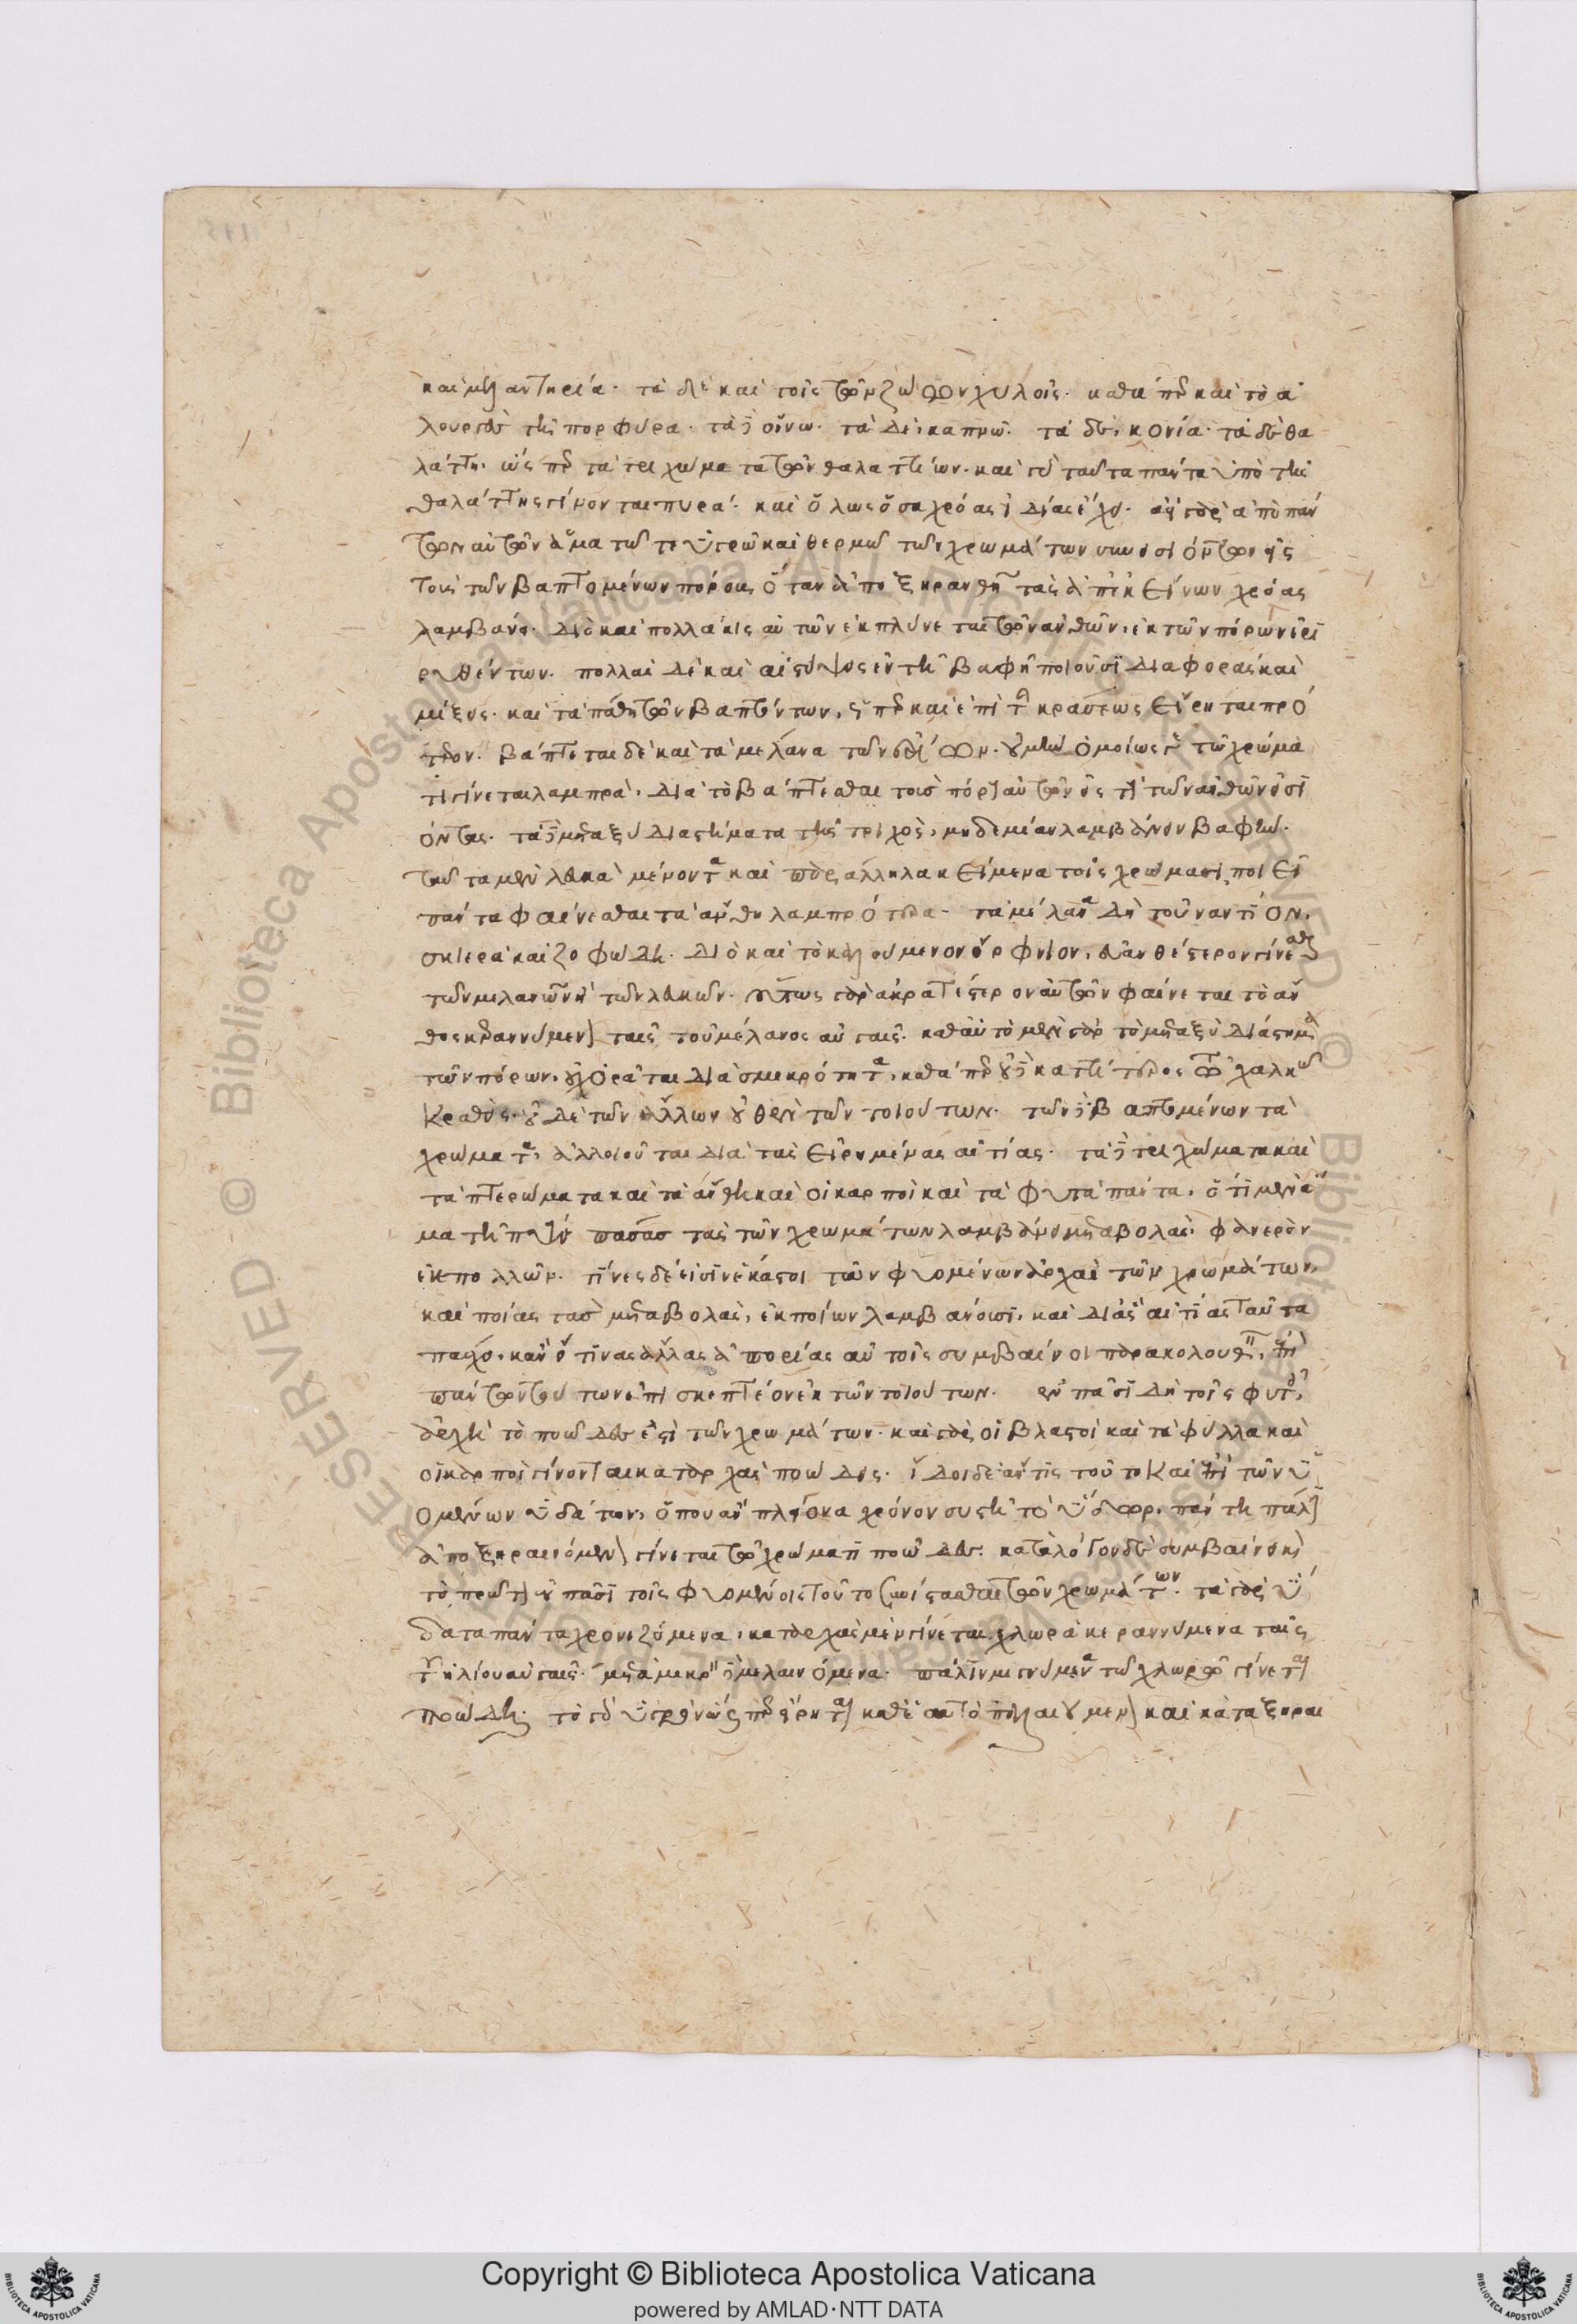 καὶ μελαντηρία. τὰ δὲ καὶ τοῖς τῶν ζώων χυλοῖς. καθάπερ καὶ τὸ ἁ
λουργὲς τῇ πορφύρα. τὰ δὲ οἴνω. τὰ δὲ καπνῶ. τὰ δὲ κονία. τὰ δὲ θα
λάττη. ὥσπερ τὰ τριχώματα τῶν θαλαττίων. καὶ γὰρ ταῦτα πάντα ὑπὸ τῆς
θαλάττης γίνονται πυρά. καὶ ὅλως ὅσα χρόας ἰδίας ἔχει. ἀεὶ γὰρ ἀπὸ πάν
των αὐτῶν ἅμα τῶ τε ὑγρῶ καὶ θερμῶ τῶν χρωμάτων συνεισιόντων εἰς
τοὺς τῶν βαπτομένων πόρους ὅταν ἀποξηρανθῆ τὰς ἀπ' ἐκείνων χρόας
λαμβάνει. διὸ καὶ πολλάκις αὐτῶν ἐκπλύνεται τῶν ἀνθῶν, ἐκ τῶν πόρων ἐκ
ρυέντων. πολλαὶ δὲ καὶ αἱ στύψεις ἐν τῇ βαφῇ ποιοῦσι διαφορὰς καὶ
μίξεις. καὶ τὰ πάθη τῶν βαπτόντων, ὥσπερ καὶ ἐπὶ τῆς κράσεως εἴρηται πρό
τερον. βάπτεται δὲ καὶ τὰ μέλανα τῶν ἐρίων. οὐ μὴν ὁμοίως γε τῶ χρώμα
τι γίνεται λαμπρὰ, διὰ τὸ βάπτεσθαι τοὺς πόρους αὐτῶν εἰς τὴν τῶν ἀνθῶν εἰσι
όντας. τὰ δὲ μεταξὺ διαστήματα τῆς τριχὸς, μηδεμίαν λαμβάνειν βαφήν.
ταῦτα μὲν λευκὰ μένοντα καὶ πρὸς ἄλληλα κείμενα τοῖς χρώμασι, ποιεῖ
πάντα φαίνεσθαι τὰ ἄνθη λαμπρότερα. τὰ μέλανα δὲ τοὐναντίον,
σκιερὰ καὶ ζοφώδη. διὸ καὶ τὸ καλούμενον ὄρφνιον, εὐανθέστερον γίνεται
τῶν μελάνων ἢ τῶν λευκῶν. οὕτως γὰρ ἀκρατέστερον αὐτῶν φαίνεται τὸ ἄν
θος κεραννύμενον ταῖς τοῦ μέλανος αὐγαῖς. καθ' αὑτὸ μὲν γὰρ τὸ μεταξὺ διάστημα
τῶν πόρων, οὐχ ὁρᾶται διὰ σμικρότητα, καθάπερ οὐδὲ καττίτερος τῶ χαλκῶ
κραθείς. οὐδὲ τῶν ἄλλων οὐθὲν τῶν τοιούτων. τῶν δὲ βαπτομένων τὰ
χρώματα, ἀλλοιοῦται διὰ τὰς εἰρημένας αἰτίας. τὰ δὲ τριχώματα καὶ
τὰ πτερώματα καὶ τὰ ἄνθη καὶ οἱ καρποὶ καὶ τὰ φυτὰ πάντα, ὅτι μὲν ἅ
μα τῇ πέψει πάσας τὰς τῶν χρωμάτων λαμβάνει μεταβολὰς, φανερὸν
ἐκ πολλῶν. τίνες δέ εἰσιν ἑκάστοι τῶν φυομένων ἀρχαὶ τῶν χρωμάτων,
καὶ ποίας τὰς μεταβολὰς, ἐκ ποίων λαμβάνουσι, καὶ δι' ἃς αἰτίας ταῦτα
πάσχει. κἂν εἴ τινας ἄλλας ἀπορίας αὐτοῖς συμβαίνει παρακολουθεῖν, περὶ
πάντων τούτων ἐπισκεπτέον ἐκ τῶν τοιούτων. ἐν πᾶσι δὴ τοῖς φυτοῖς
ἀρχὴ τὸ ποῶδες ἐστὶ τῶν χρωμάτων. καὶ γὰρ οἱ βλαστοὶ καὶ τὰ φύλλα καὶ
οἱ καρποὶ γίνονται κατ' ἀρχὰς ποώδεις. ἴδοι δ' ἄν τις τοῦτο καὶ ἐπὶ τῶν ὑ
ομένων ὑδάτων, ὅπου ἂν πλείονα χρόνον συστῇ τὸ ὕδωρ, πάντη πάλιν
ἀποξηραινόμενον γίνεται τῶ χρώματι ποῶδες. κατὰ λόγον δὲ συμβαίνει καὶ
τὸ πρῶτον ἐν πᾶσι τοῖς φυομένοις τοῦτο συνίστασθαι τῶν χρωμάτων. τὰ γὰρ ὕ
δατα πάντα χρονιζόμενα, κατ' ἀρχὰς μὲν γίνεται χλωρὰ κεραννύμενα ταῖς
τοῦ ἡλίου αὐγαῖς. μετὰ μικρὸν δὲ μελαινόμενα. πάλιν μιγνύμενα τῶ χλωρῶ γίνεται
ποώδη. τὸ γὰρ ὑγρὸν ὥσπερ εἴρηται καθ' ἑαυτὸ παλαιούμενον καὶ καταξηραι